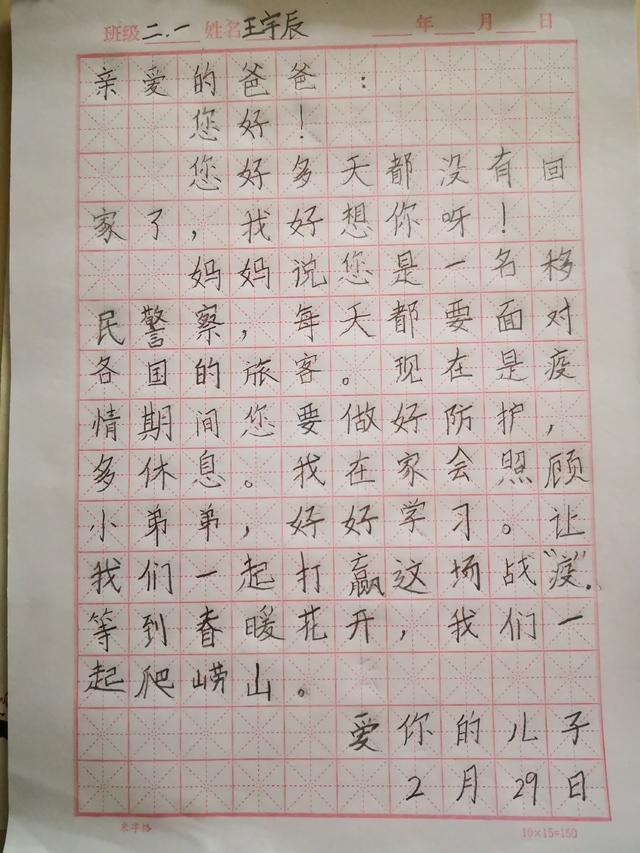 班级二.一 姓名王宇辰 年 月 日
亲爱的爸爸：
您好！
您好多天都没有回
家了，我好想你呀！
妈妈说您是一名移
民警察，每天都要面对
各国的旅客。现在是疫
情期间您要做好防护，
多休息。我在家会照顾
小弟弟，好好学习。让
我们一起打赢这场战“疫”.
等到春暖花开，我们一
起爬崂山。
爱你的儿子
2月29日
米字格 10×15=150